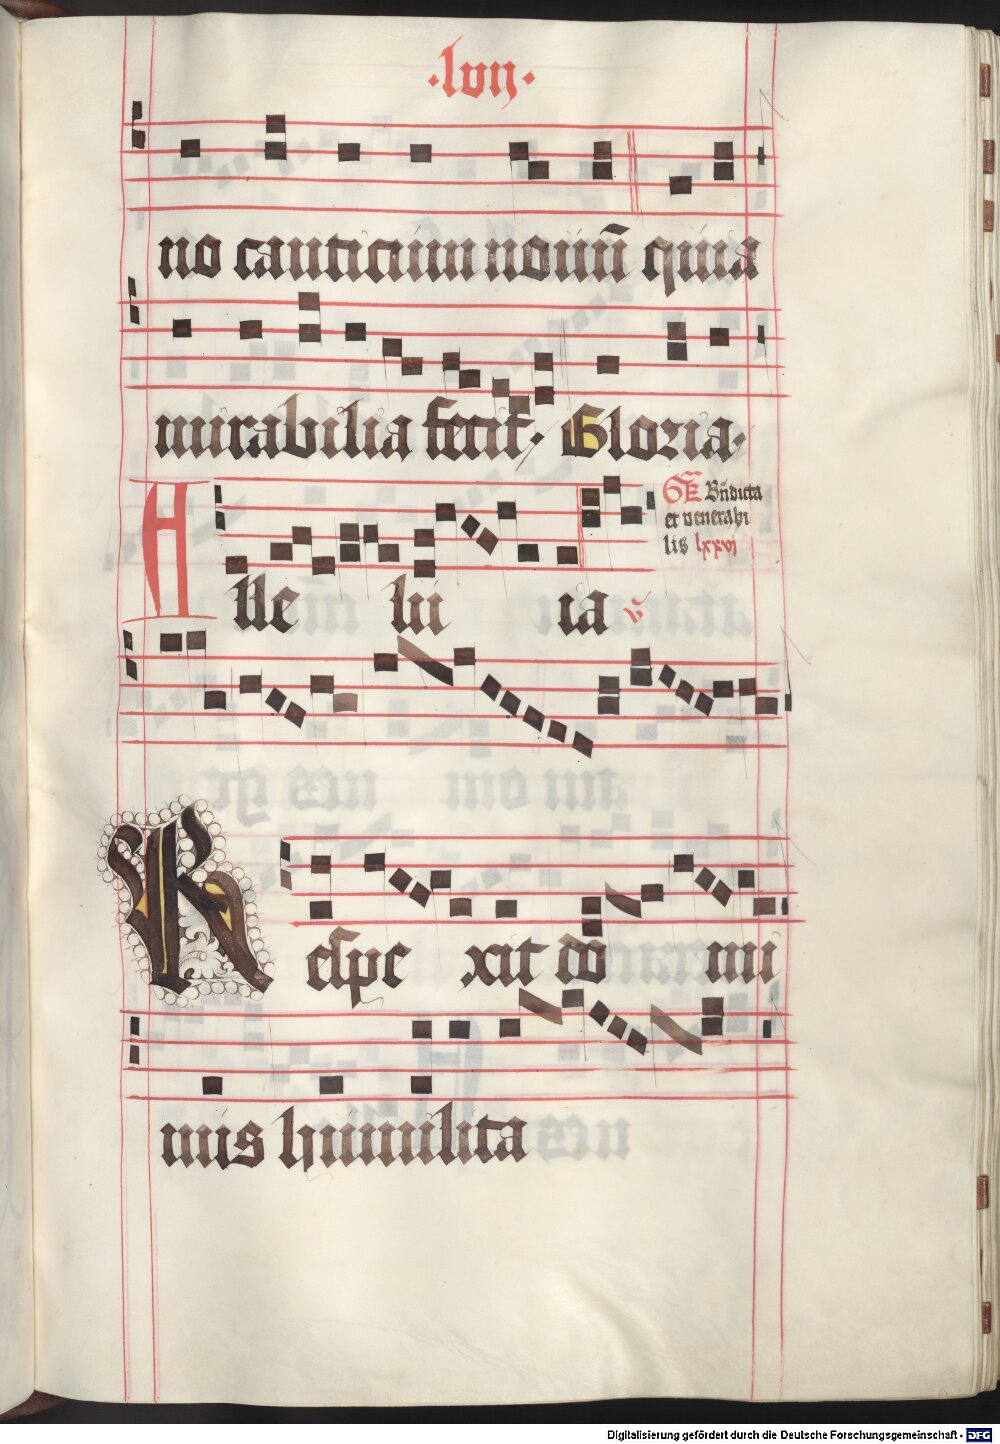 ·lvij·
no canticum nouū quia
mirabilia fecit· Gloria·
Alle lu ia v̄
Gr̄ Bn̄dicta
et venerabi
lis lxxvj
Respe xit do mi
nus humilita
Digitalisierung gefördert durch die Deutsche Forschungsgemeinschaft - DFG